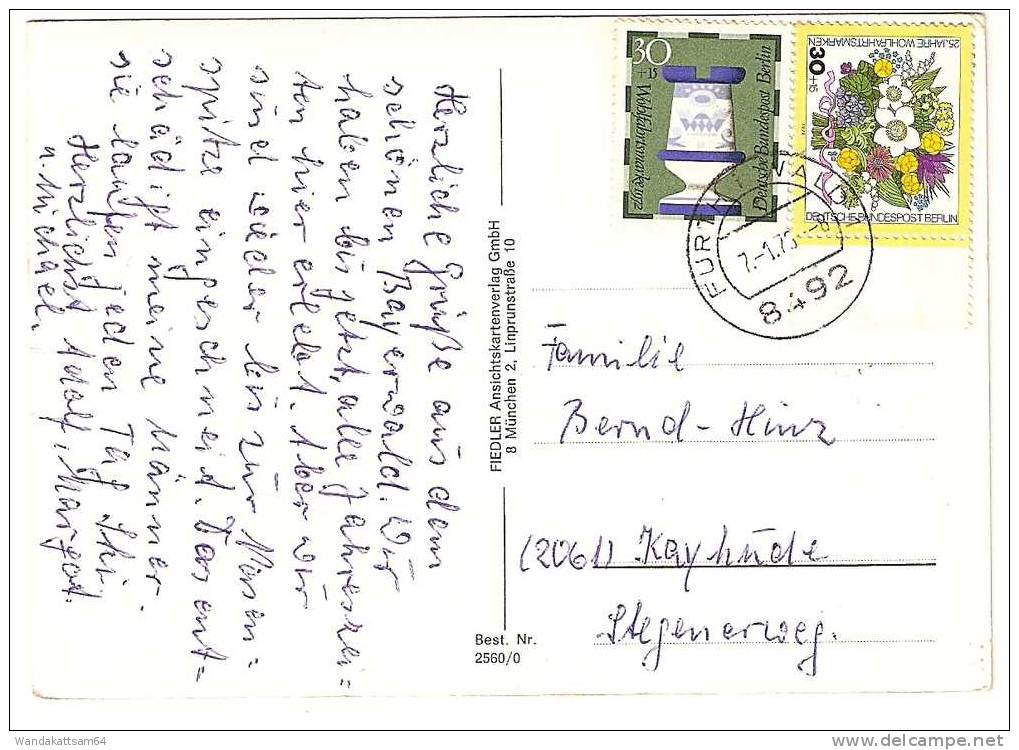 Herzliche Grüße aus dem
schönen Bayerwald. Wir
haben bis jetzt, alle Jahreszei=
ten hier erlebt. Aber wir
sind wieder bis zur Nasen=
spitze eingeschneid. Das ent=
schädigt meine Männer.
sie laufen jeden Tag Ski.
Herzlichst Adolf, Margot
u. Michael.
FIEDLER Ansichtskartenverlag GmbH
8 München 2, Linprunstraße 10
Best. Nr.
2560/0
30
+15
Wohlfahrtsmarke 1972
Deutsche Bundespost Berlin
25 JAHRE WOHLFAHRTSMARKEN
30+15
1974
DEUTSCHE BUNDESPOST BERLIN
FURTH I. WALD
7.-1.75-
8492
Familie
Bernd-Hinz
(2061) Kayhude
Stegenerweg.
Wandakattsam64
http://www.delcampe.net